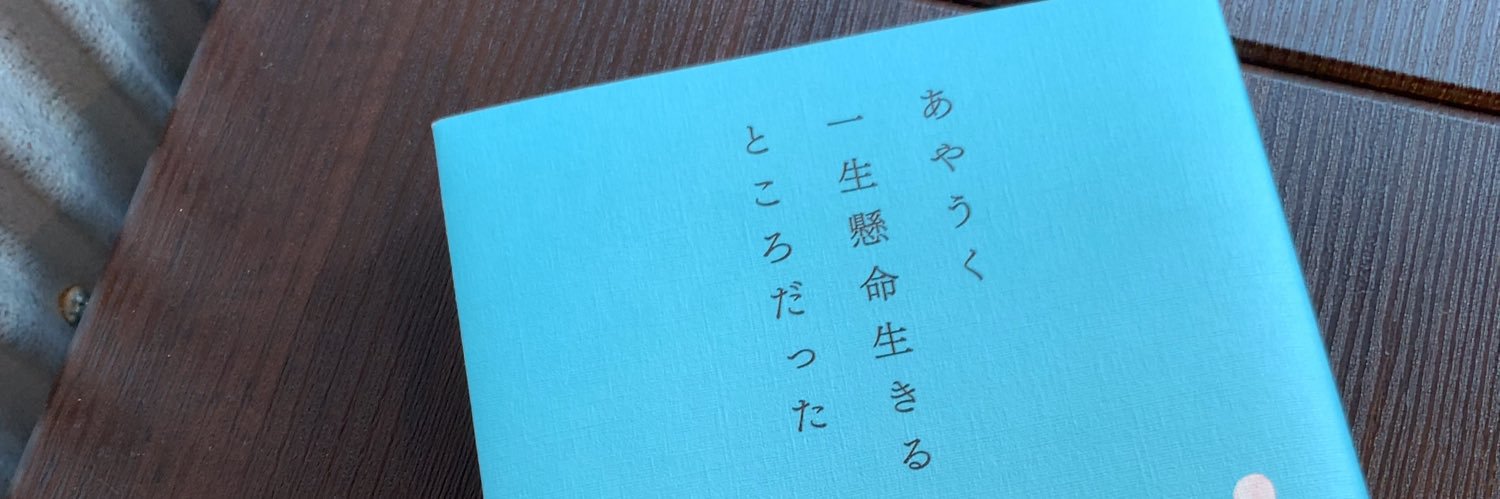 あやうく
一生懸命生きる
ところだった